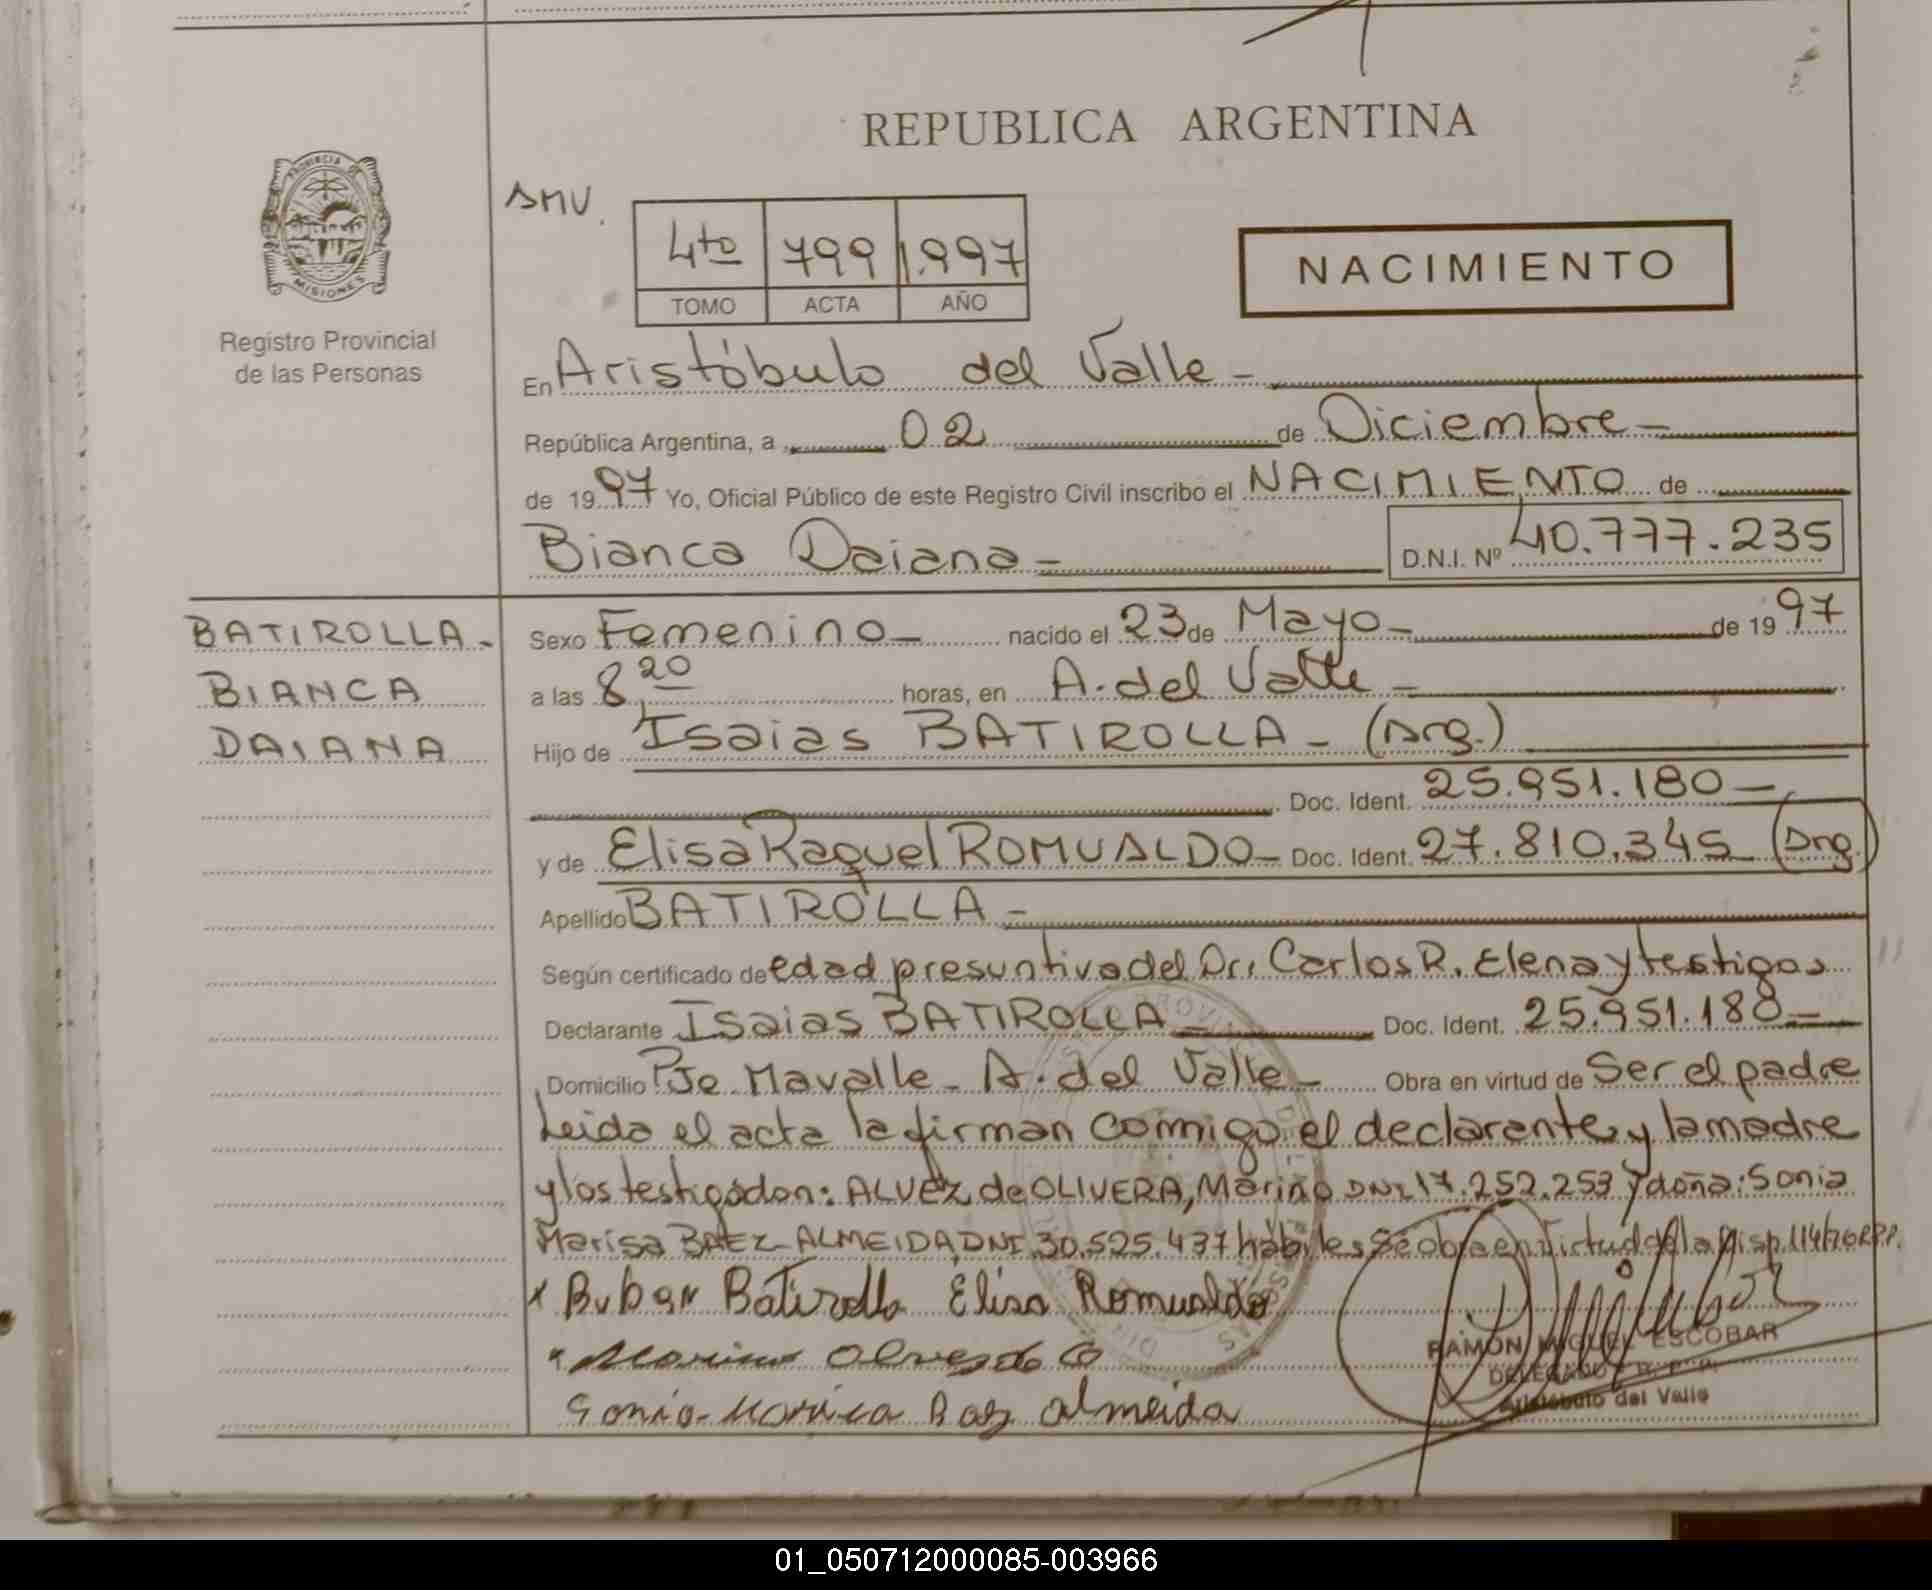 REPUBLICA ARGENTINA
PROVINCIA DE
MISIONES
Registro Provincial
de las Personas
SMV.
4to 799 1.997
TOMO ACTA AÑO
NACIMIENTO
En Aristóbulo del Valle -
República Argentina, a 02 de Diciembre -
de 1997 Yo, Oficial Público de este Registro Civil inscribo el NACIMIENTO de
Bianca Daiana - D.N.I. Nº 40.777.235
BATIROLLA -
BIANCA
DAIANA
Sexo Femenino - nacido el 23 de Mayo - de 1997
a las 8,20 horas, en A. del Valle -
Hijo de Isaias BATIROLLA - (Arg.)
Doc. Ident. 25.951.180 -
y de Elisa Raquel ROMUALDO - Doc. Ident. 27.810.345 (Arg.)
Apellido BATIROLLA -
Según certificado de edad presuntiva del Dr. Carlos R. Elena y testigos
Declarante Isaias BATIROLLA - Doc. Ident. 25.951.180 -
Domicilio Pje Mavalle - A. del Valle - Obra en virtud de Ser el padre
Leida el acta la firman conmigo el declarante, y la madre
y los testigos don: ALVEZ de OLIVERA, Marino DNI 17.252.253 y doña: Sonia
Marisa BAEZ ALMEIDA DNI 30.525.437 hábiles Se obra en Virtud de la Disp. 114/76 RPP.
x Batirolla Elisa Romualdo
Sonia Almeida
RAMON MIGUEL ESCOBAR
DELEGADO R. P. P.
Aristobulo del Valle
01_050712000085-003966